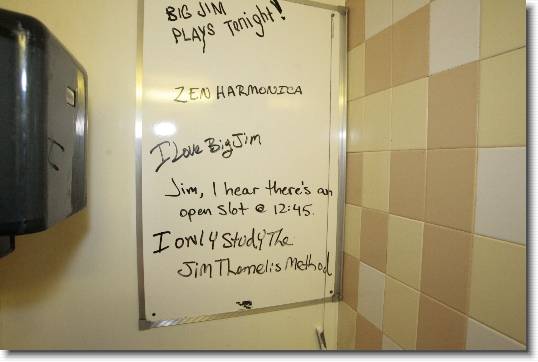 BIG JIM
PLAYS Tonight!
ZEN HARMONICA
I Love Big Jim
Jim, I hear there's an
open slot @ 12:45.
I only Study The
Jim Themelis Method